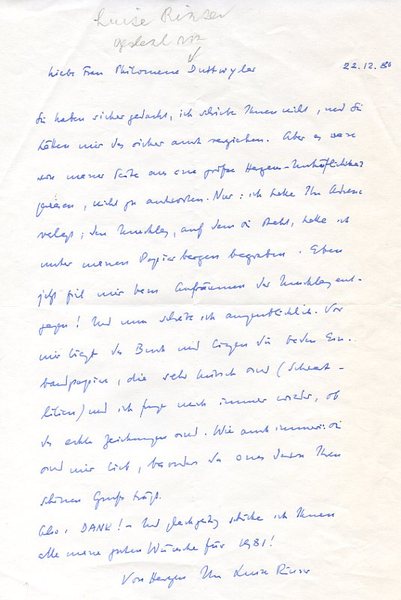 Luise Rinser
Liebe Frau Philomene Duttwyler 22.12.80
Sie haben sicher gedacht, ich schriebe Ihnen nicht, und Sie
hätten mir das sicher auch verziehen. Aber es wäre
von meiner Seite aus eine große Herzens-Unhöflichkeit
gewesen, nicht zu antworten. Nur: ich hatte Ihre Adresse
verlegt; den Umschlag, auf dem sie steht, hatte ich
unter meinen Papierbergen begraben. Eben
jetzt fiel mir beim Aufräumen der Umschlag ent-
gegen! Und nun schreibe ich augenblicklich. Vor
mir liegt das Buch und liegen die beiden Ein-
bandpapiere, die sehr hübsch sind (
lilien) und ich frage mich immer wieder, ob
das echte Zeichnungen sind. Wie auch immer: sie
sind mir lieb, besonders da eines davon Ihren
schönen Gruß trägt.
Also: DANK! – Und gleichzeitig schicke ich Ihnen
alle meine guten Wünsche für 1981!
Von Herzen Ihre Luise Rinser